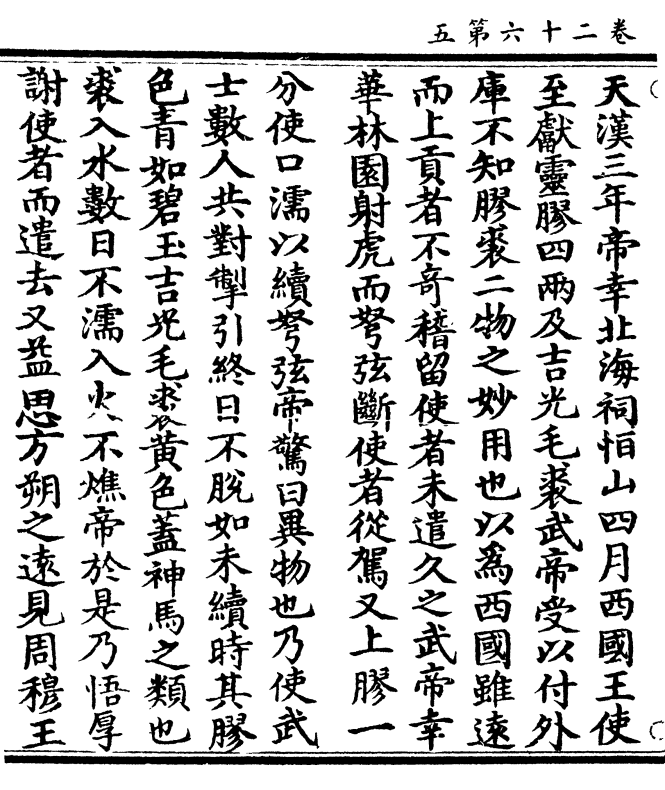 卷二十六第五
天漢三年帝幸北海祠恒山四月西國王使
至獻靈膠四兩及吉光毛裘武帝受以付外
庫不知膠裘二物之妙用也以爲西國雖遠
而上貢者不奇稽留使者未遣久之武帝幸
華林園射虎而弩弦斷使者從駕又上膠一
分使口濡以續弩弦帝驚曰異物也乃使武
士數人共對掣引終日不脫如未續時其膠
色青如碧玉吉光毛裘黄色蓋神馬之類也
裘入水數日不濡入火不燋帝於是乃悟厚
謝使者而遣去又益思方朔之遠見周穆王